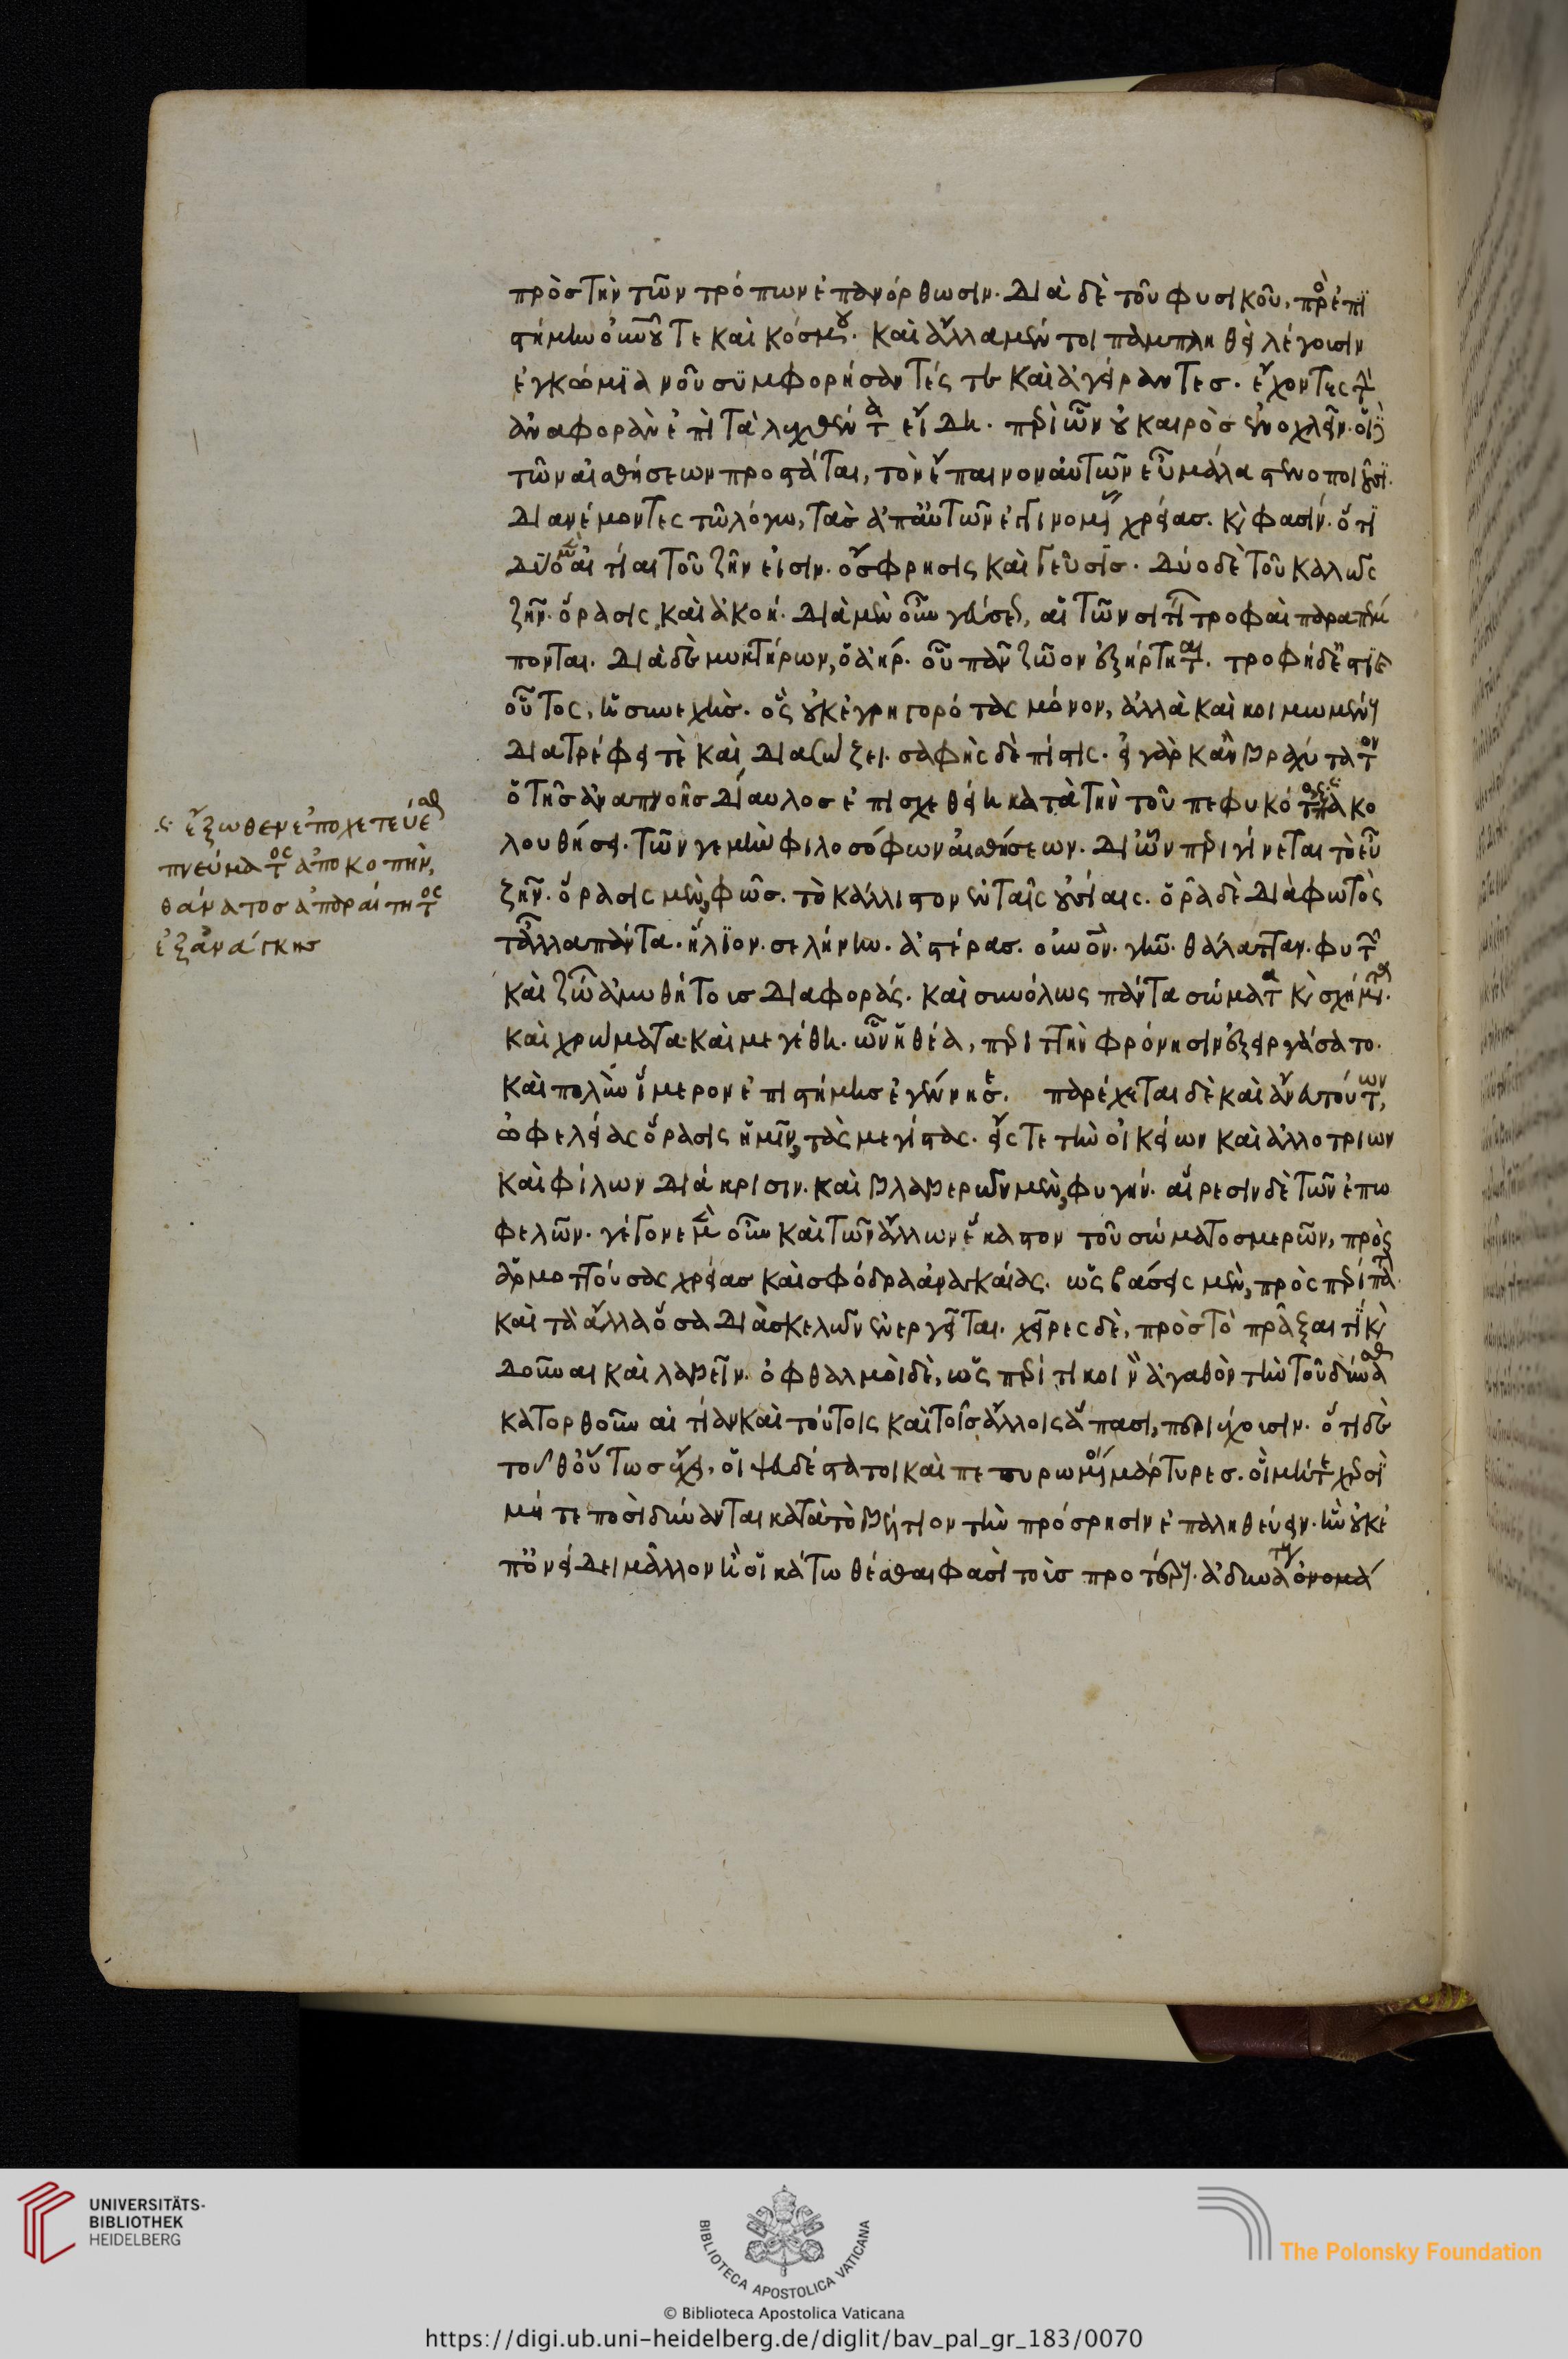 πρὸς τὴν τῶν τρόπων ἐπανόρθωσιν. διὰ δὲ τοῦ φυσικοῦ, πρὸς ἐπι
στήμην οὐρανοῦ τε καὶ κόσμου. καὶ ἄλλα μέν τοι παμπληθῆ λέγουσιν
ἐγκώμια νοῦ συμφορήσαντές τε καὶ ἀγείραντες. ἔχοντες τὴν
ἀναφορὰν ἐπὶ τὰ λεχθέντα εἴδη. περὶ ὧν οὐ καιρὸς ἐνοχλεῖν. οἱ δὲ
τῶν αἰσθήσεων προστάται, τὸν ἔπαινον αὐτῶν εὖ μάλα σεμνοποιοῦσι.
διανέμοντες τῷ λόγῳ, τὰς ἀπ' αὐτῶν ἐγγινομένας χρείας. καὶ φασίν. ὅτι
δύο μὲν αἰτίαι τοῦ ζῆν εἰσιν. ὄσφρησις καὶ γεῦσις. δύο δὲ τοῦ καλῶς
ζῆν. ὅρασις, καὶ ἀκοή. διὰ μὲν οὖν γεύσεως, αἱ τῶν σιτίων τροφαὶ παραπέμ
πονται. διὰ δὲ μυκτήρων, ὁ ἀήρ. οὗ πᾶν ζῶον ἐξήρτηται. τροφὴ δέ ἐστι
οὗτος, ἡ συνεχής. ὃς οὐκ ἐγρηγορότας μόνον, ἀλλὰ καὶ κοιμωμένους
διατρέφει τὲ καὶ διασώζει. σαφὴς δὲ πίστις. εἰ γὰρ κἂν βραχύτατον
ὁ τῆς ἀναπνοῆς δίαυλος ἐπισχεθείη κατὰ τὴν τοῦ πεφυκότος ἀκο
λουθήσει. τῶν γε μὴν φιλοσόφων αἰσθήσεων. δι' ὧν περιγίνεται τὸ εὖ
ζῆν. ὅρασις μὲν, φῶς. τὸ κάλλιστον ἐν ταῖς οὐσίαις. ὁρᾷ δὲ διὰ φωτὸς
τἄλλα πάντα. ἥλιον. σελήνην. ἀστέρας. οὐρανόν. γῆν. θάλατταν. φυτῶν
καὶ ζώων ἀμυθήτοις διαφοράς. καὶ συνόλως πάντα σώματα καὶ σχήματα.
καὶ χρώματα. καὶ μεγέθη. ὧν ἡ θέα, περιττὴν φρόνησιν ἐξειργάσατο.
καὶ πολὺν ἵμερον ἐπιστήμης ἐγέννησε. παρέχεται δὲ καὶ ἄνευ τούτων,
ὠφελείας ὅρασις ἡμῖν, τὰς μεγίστας. εἴς τε τὴν οἰκείων καὶ ἀλλοτρίων
καὶ φίλων διάκρισιν. καὶ βλαβερῶν μὲν, φυγήν. αἵρεσιν δὲ τῶν ἐπω
φελῶν. γέγονε μὲν οὖν καὶ τῶν ἄλλων ἕκαστον τοῦ σώματος μερῶν, πρὸς
ἁρμοττούσας χρείας καὶ σφόδρα ἀναγκαίας. ὡς βάσεις μὲν, πρὸς περίπατον.
καὶ τὰ ἄλλα ὅσα διὰ σκελῶν ἐνεργεῖται. χεῖρες δὲ, πρὸς τὸ πρᾶξαι τι καὶ
δοῦναι καὶ λαβεῖν. ὀφθαλμοὶ δὲ, ὡς περί τι κοινὸν ἀγαθὸν τὴν τοῦ δύνασθαι
κατορθοῦν αἰτίαν καὶ τούτοις καὶ τοῖς ἄλλοις ἅπασι, περιέχουσιν. ὅτι δὲ
τοῦθ' οὕτως ἔχει, οἱ ἀψευδέστατοι καὶ πεπυρωμένοι μάρτυρες. οἱ μήτε χερσὶ
μήτε ποσὶ δύνανται κατὰ τὸ βέλτιον τὴν πρόσρησιν ἐπαληθεύειν. ἣν οὐκ ἐ
π' ὀνείδει μᾶλλον ἢ οἴκτῳ θέσθαι φασὶ τοῖς προτέροις. ἀδυνάτους ὀνομά
ἔξωθεν ἐποχετεύεσθαι
πνεύματος ἀποκοπὴν,
θάνατος ἀπαραίτητος
ἐξ ἀνάγκης
UNIVERSITÄTS-
BIBLIOTHEK
HEIDELBERG
BIBLIOTECA APOSTOLICA VATICANA
The Polonsky Foundation
© Biblioteca Apostolica Vaticana
https://digi.ub.uni-heidelberg.de/diglit/bav_pal_gr_183/0070